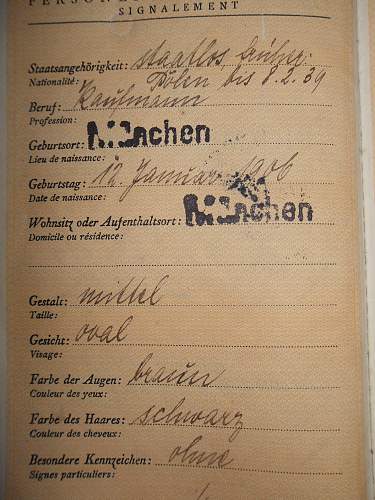 SIGNALEMENT
Staatsangehörigkeit: staatlos früher:
Nationalité: Polen bis 8.2.39
Beruf: Kaufmann
Profession:
Geburtsort: München
Lieu de naissance:
Geburtstag: 12. Januar 1906
Date de naissance:
Wohnsitz oder Aufenthaltsort: München
Domicile ou résidence:
Gestalt: mittel
Taille:
Gesicht: oval
Visage:
Farbe der Augen: braun
Couleur des yeux:
Farbe des Haares: schwarz
Couleur des cheveux:
Besondere Kennzeichen: ohne
Signes particuliers: